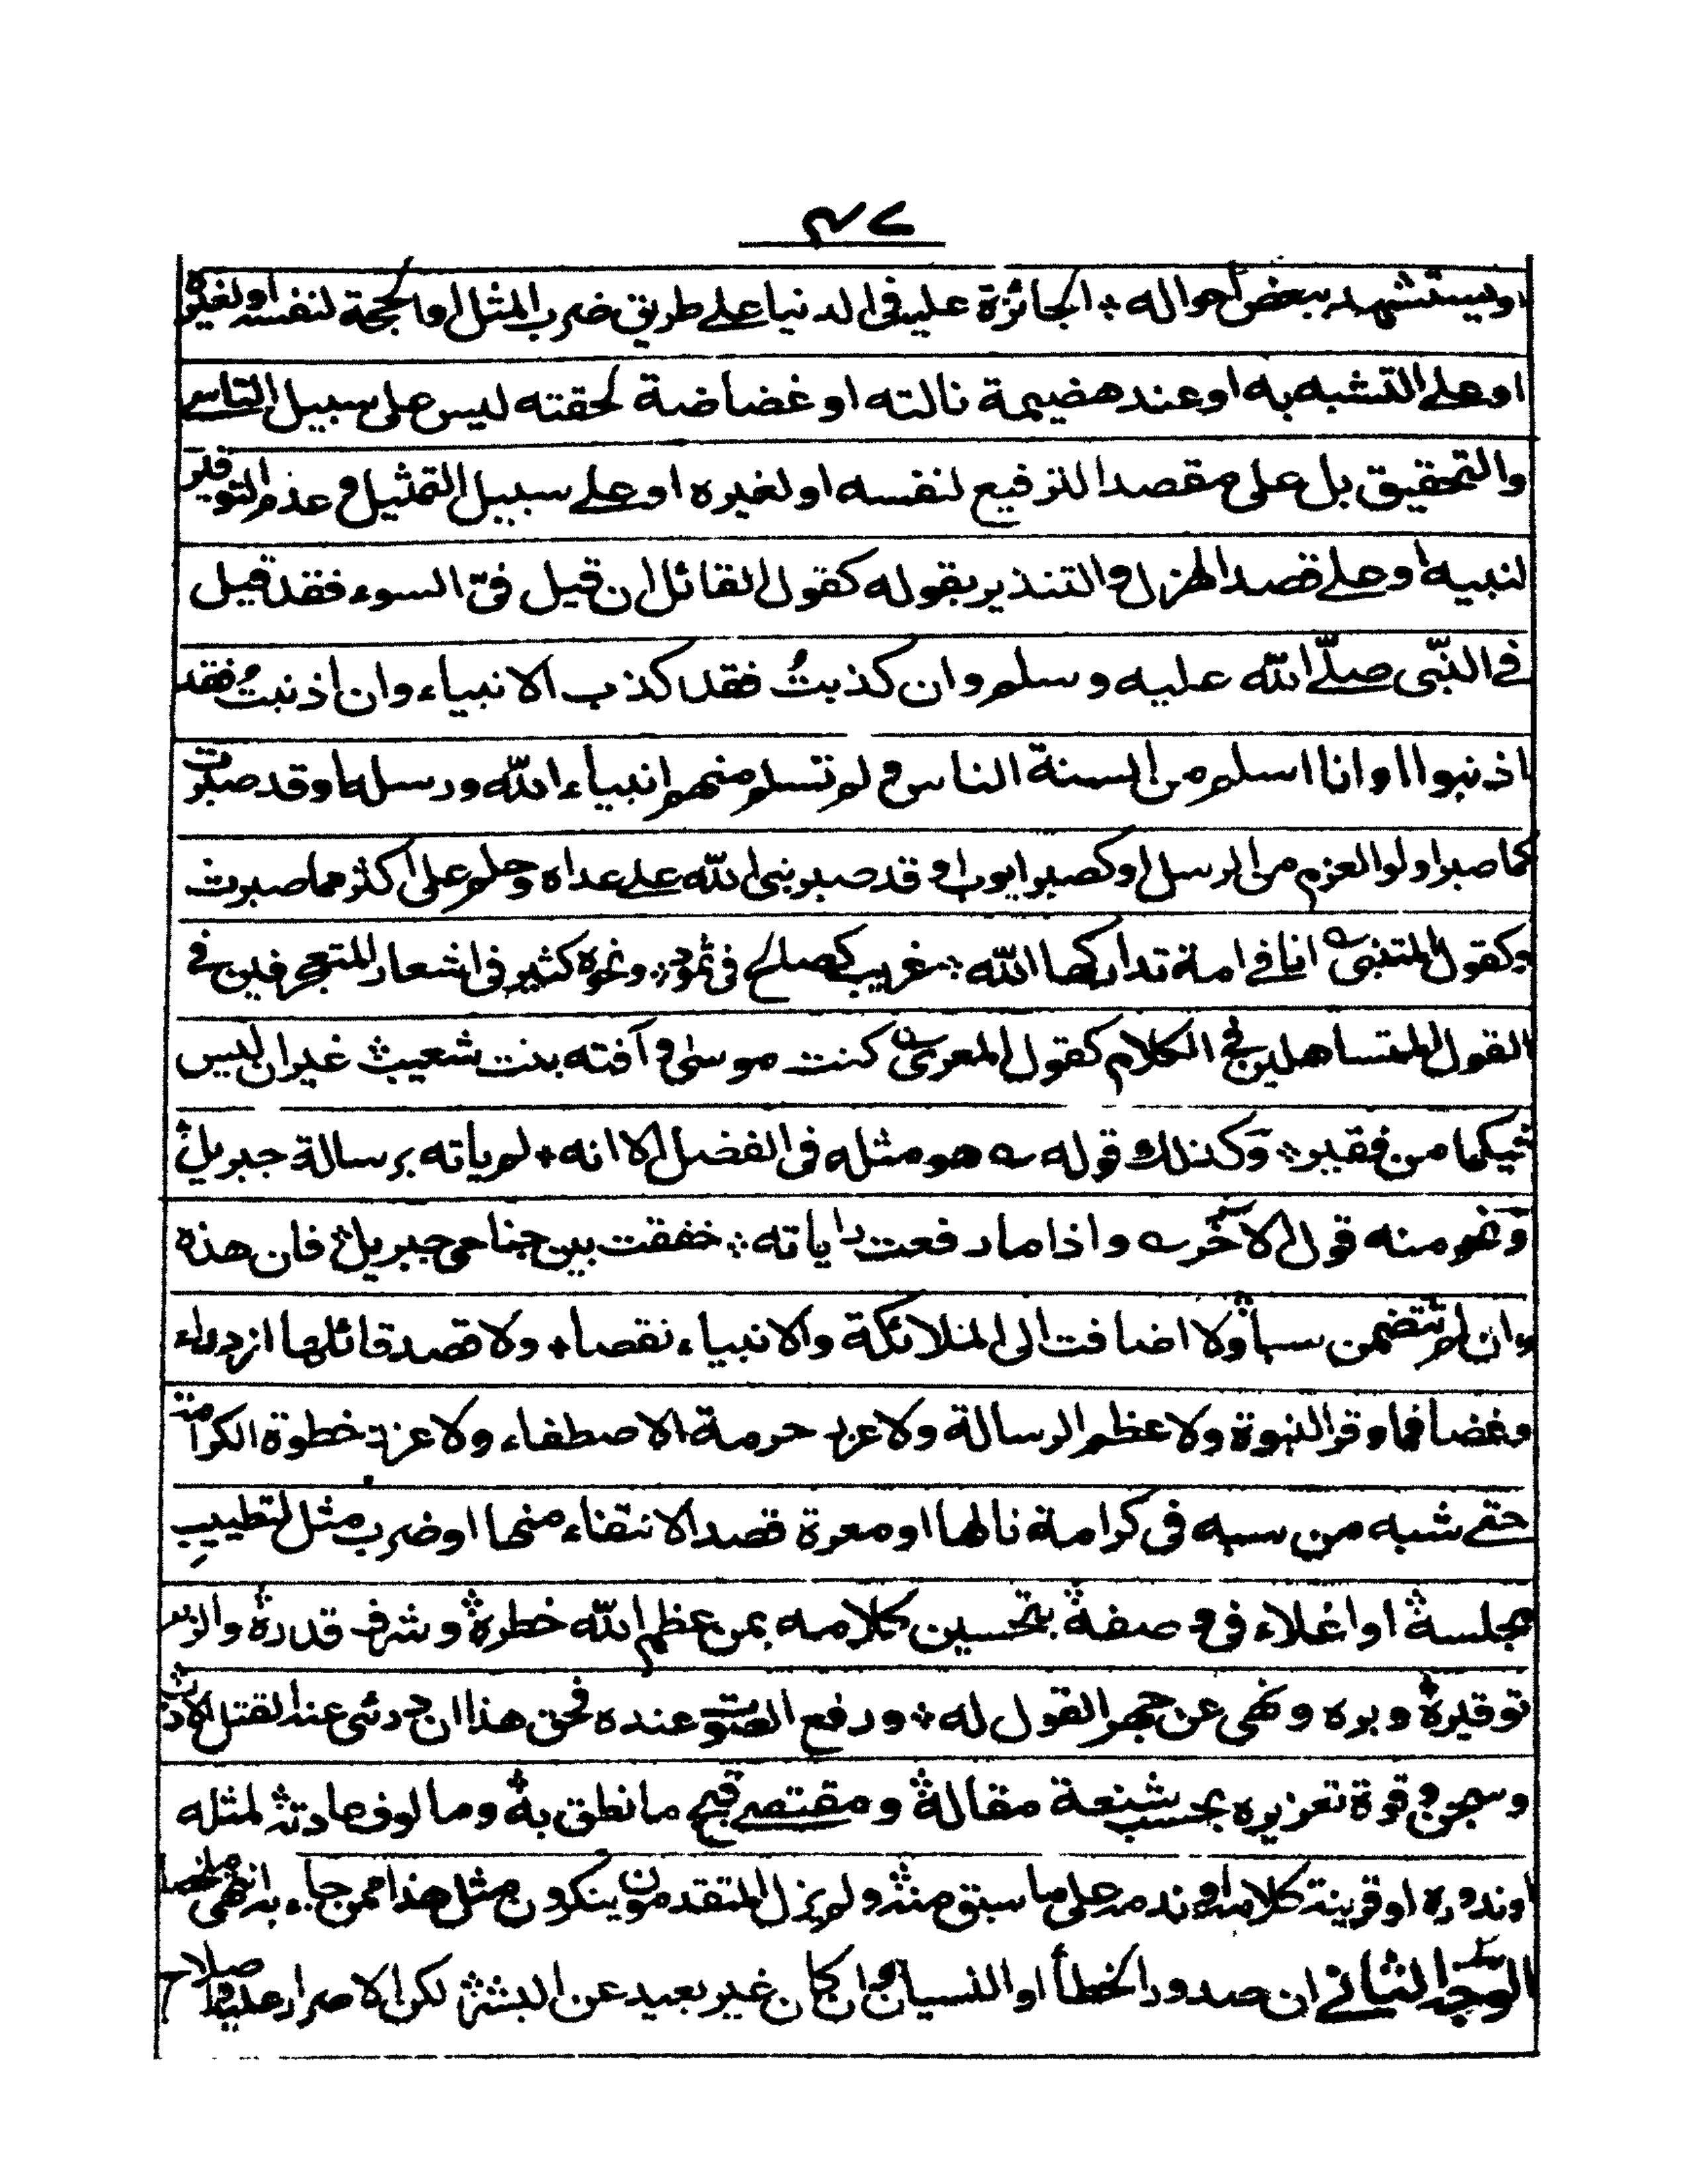 ٤٧
او يستشهد ببعض احواله ؞ الجائزة عليه فى الدنيا على طريق ضرب المثل او الحجة لنفسه او لغيره
او على التشبه به او عند هضيمة نالته او غضاضة لحقته ليس على سبيل التاسى
والتحقيق بل على مقصد الترفيع لنفسه او لغيره او على سبيل التمثيل و عدم التوقير
لنبيه او على قصد الهزل و التنذير بقوله كقول القائل ان قيل فىّ السوء فقد قيل
فى النّبى صلّى اللّه عليه وسلم وان كذبتُ فقد كذب الانبياء وان اذنبتُ فقد
اذنبوا او انا اسلم من السنة الناس و لم تسلم منهم انبياء اللّه ورسله او قد صبرت
كما صبر اولوا العزم من الرسل او كصبر ايوب او قد صبر نبى اللّه على عداه وحلم على اكثر مما صبرت
وكقول المتنبى انا فى امة تداركها اللّه ؞ غريب كصالح فى ثمود ؞ ونحوه كثير فى اشعار المتعجرفين فى
القول المتساهلين فى الكلام كقول المعرى كنت موسى و آفته بنت شعيب ؞ غير ان ليس
فيكما من فقير ؞ وكذلك قوله هو مثله فى الفضل الا انه ؞ لم ياته برسالة جبريل ؞
ونحو منه قول الآخر و اذا ما رفعت راياته ؞ خفقت بين جناحى جبريل ؞ فان هذه
وان لم تتضمن سبا ؞ ولا اضافت الى الملائكة والانبياء نقصا ؞ ولا قصد قائلها ازدراء
وغضا فما وقر النبوة ولا عظم الرسالة ولا عزر حرمة الاصطفاء ولا عزز خطوة الكرامة
حتى شبه من سبه فى كرامة نالها او معرة قصد الانتفاء منها او ضرب مثل لتطييب
مجلسه ؞ او اغلاء فى و صفه ؞ بتحسين كلامه بمن عظم اللّه خطره ؞ و شرف قدره ؞ والزم
توقيره ؞ و بره و نهى عن جهر القول له ؞ و رفع الصوت عنده فحق هذا ان درئى عند القتل الادب
و سجن و قوة تعزيره بحسب شنعة مقاله ؞ و مقتضى قبح ما نطق به ؞ وما لوف عادته ؞ لمثله
او ندوره او قرينة كلامه او ندمه على ما سبق منه ؞ و لم يزل المتقدمون ينكرون مثل هذا ممن جاء به انتهى ملخصا
الوجه الثانى ان صدور الخطأ او النسيان و ان كان غير بعيد عن البشر ؞ لكن الاصرار عليه و اصلاح